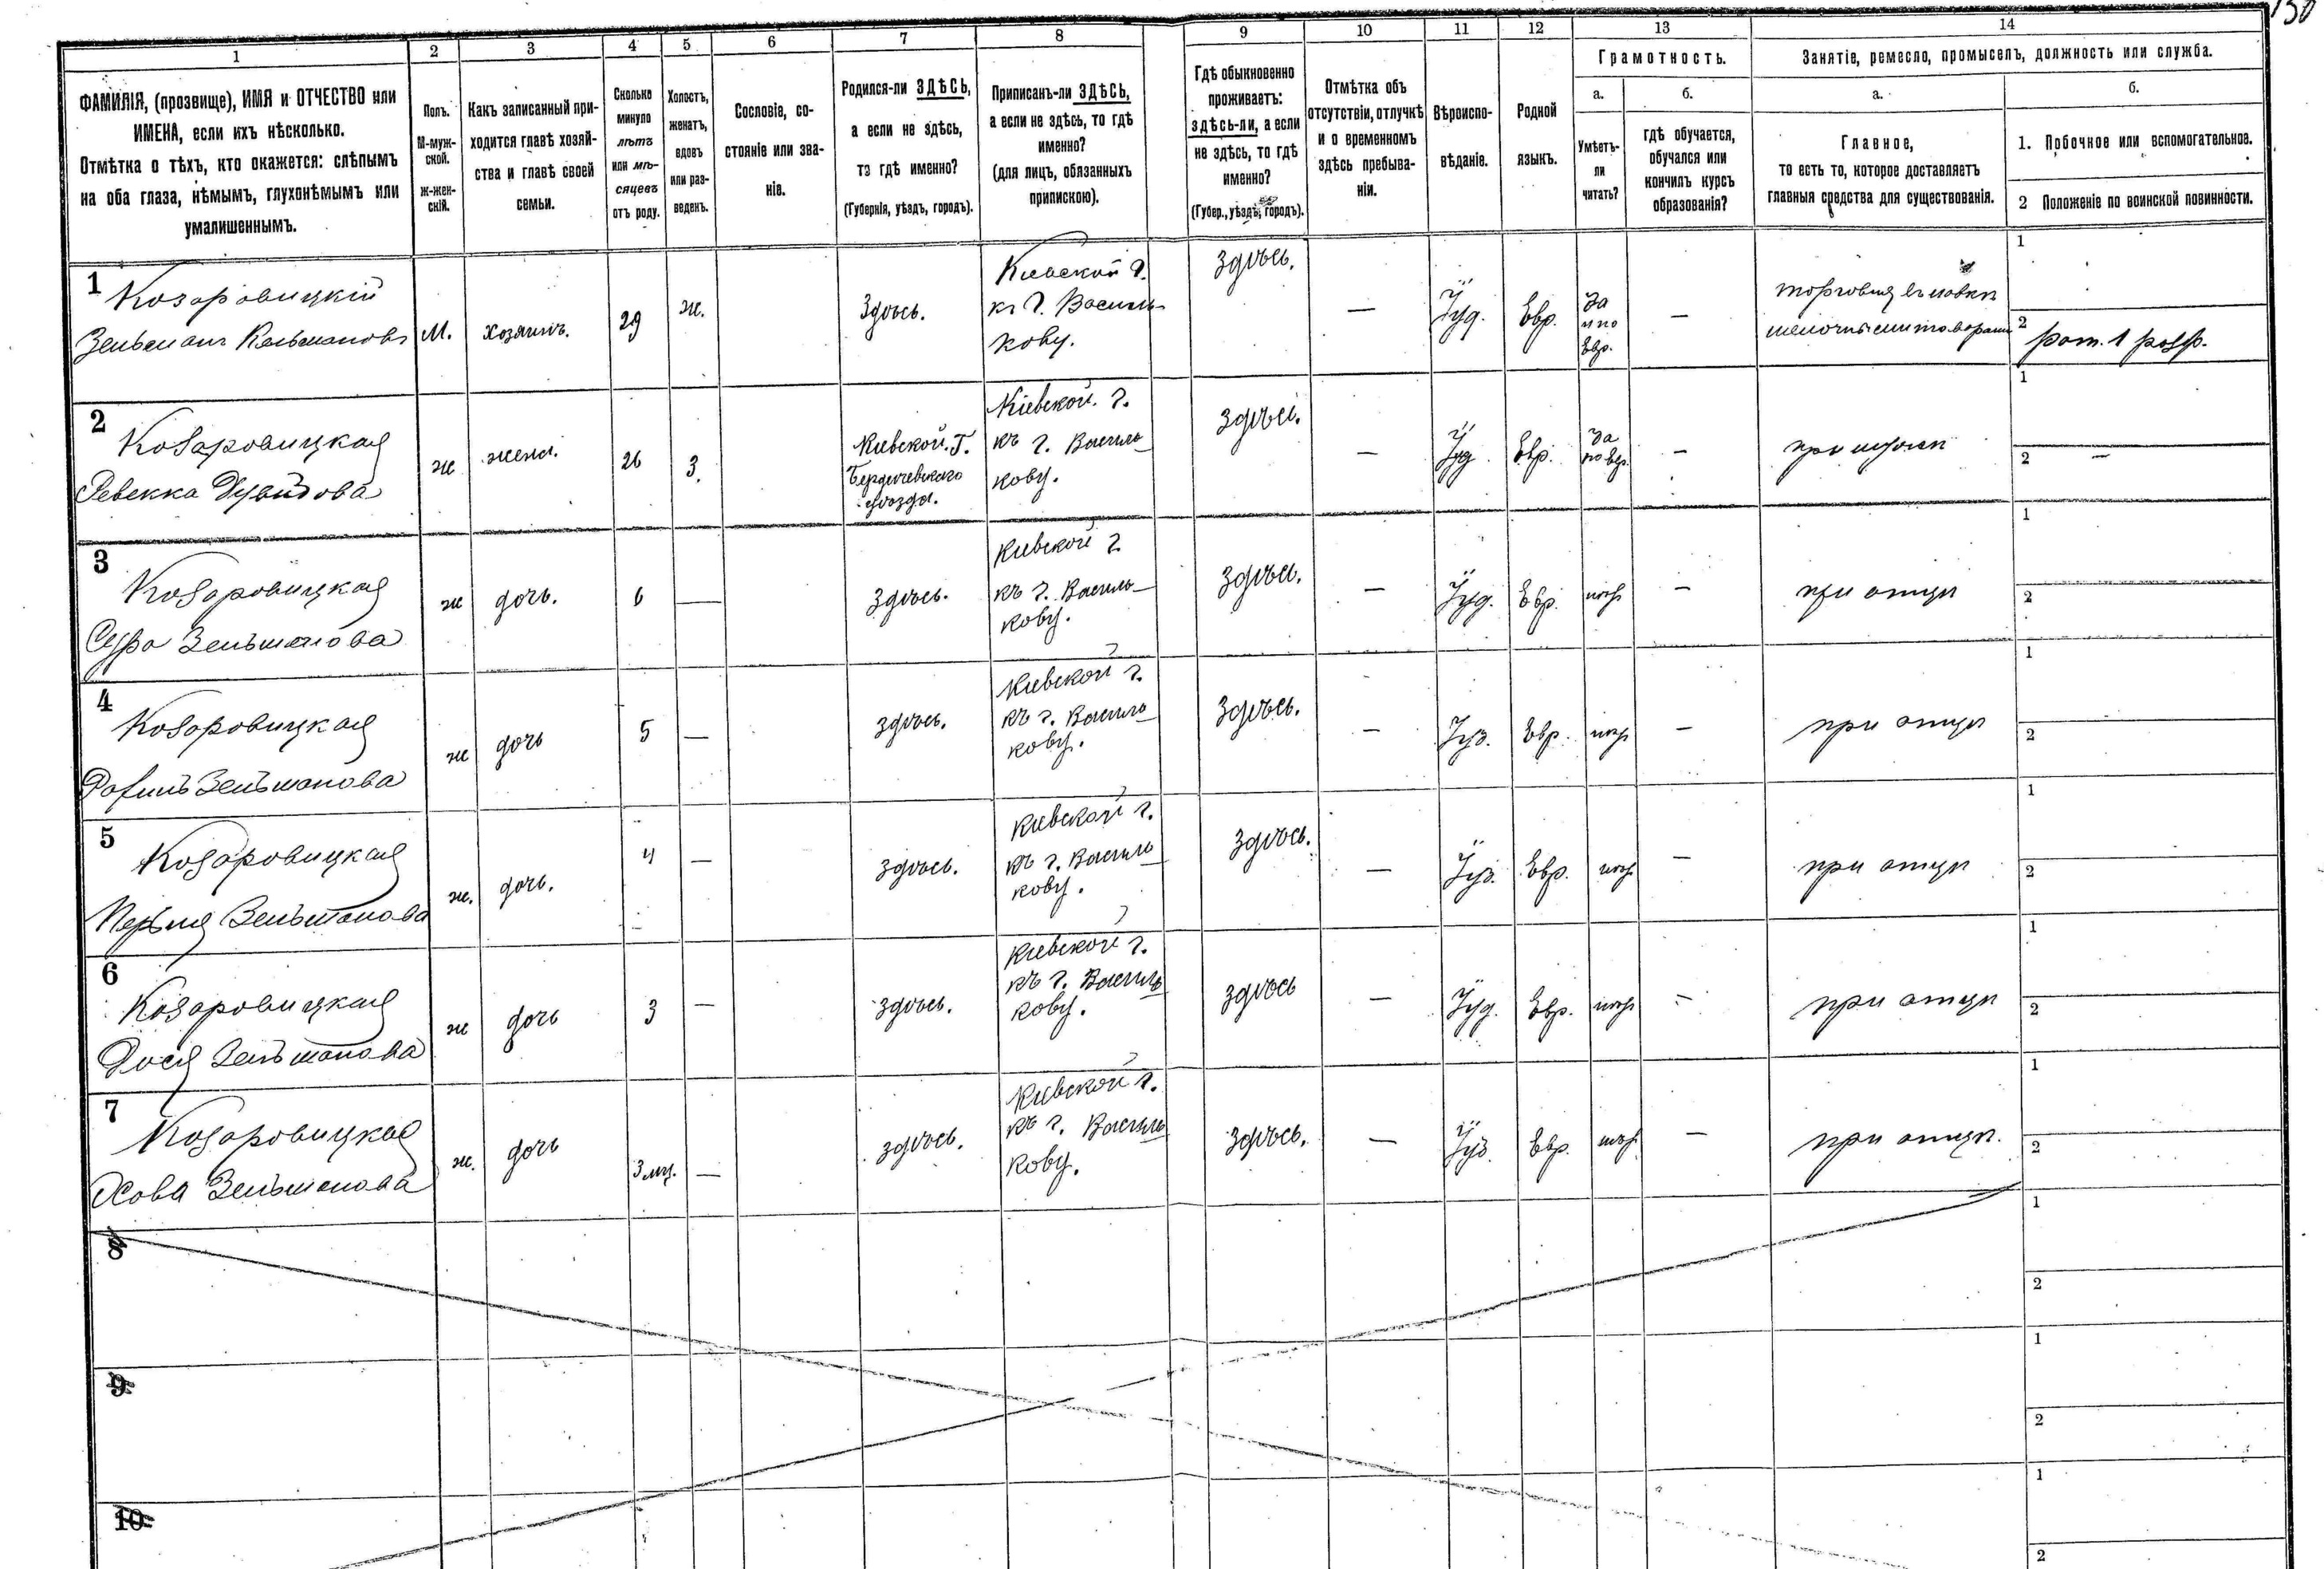 130
1 2 3 4 5 6 7 8 9 10 11 12 13 14
ФАМИЛІЯ, (прозвище), ИМЯ и ОТЧЕСТВО или
ИМЕНА, если ихъ нѣсколько.
Отмѣтка о тѣхъ, кто окажется: слѣпымъ
на оба глаза, нѣмымъ, глухонѣмымъ или
умалишеннымъ.
Полъ.
М-муж-
ской.
ж-жен-
скій.
Какъ записанный при-
ходится главѣ хозяй-
ства и главѣ своей
семьи.
Сколько
минуло
лѣтъ
или мѣ-
сяцевъ
отъ роду.
Холостъ,
женатъ,
вдовъ
или раз-
веденъ.
Сословіе, со-
стояніе или зва-
ніе.
Родился-ли ЗДѢСЬ,
а если не здѣсь,
то гдѣ именно?
(Губернія, уѣздъ, городъ).
Приписанъ-ли ЗДѢСЬ,
а если не здѣсь, то гдѣ
именно?
(для лицъ, обязанныхъ
припискою).
Гдѣ обыкновенно
проживаетъ:
здѣсь-ли, а если
не здѣсь, то гдѣ
именно?
(Губер., уѣздъ, городъ).
Отмѣтка объ
отсутствіи, отлучкѣ
и о временномъ
здѣсь пребыва-
ніи.
Вѣроиспо-
вѣданіе.
Родной
языкъ.
Грамотность.
а.
Умѣетъ-
ли
читать?
б.
гдѣ обучается,
обучался или
кончилъ курсъ
образованія?
Занятіе, ремесло, промыселъ, должность или служба.
а.
Главное,
то есть то, которое доставляетъ
главныя средства для существованія.
б.
1. Побочное или вспомогательное.
2 Положеніе по воинской повинности.
1
Козаровицкій
Зельманъ Кельмановъ
М.
хозяинъ.
29
ж.
Здѣсь.
Кіевской г.
къ г. Василь-
кову.
здѣсь.
—
Іуд.
Евр.
да
и по
Евр.
—
торговля въ лавкѣ
мелочными товарами
1
2
рат. 1 разр.
2
Козаровицкая
Ревекка Дувидова
ж
жена.
26
З.
Кіевской. Г.
Бердичевскаго
уѣзда.
Кіевской. г.
къ г. Василь-
кову.
здѣсь.
—
Іуд.
Евр.
да
по евр.
—
при мужѣ
1
2 —
3
Козаровицкая
Сура Зельманова
ж
дочь.
6
—
здѣсь.
Кіевской г.
къ г. Василь-
кову.
здѣсь.
—
Іуд.
Евр.
—
при отцѣ
1
2
4
Козаровицкая
Зельманова
ж
дочь
5
—
здѣсь.
Кіевской г.
къ г. Василь-
кову.
здѣсь.
—
Іуд.
Евр.
—
при отцѣ
1
2
5
Козаровицкая
Перля Зельманова
ж.
дочь.
4
—
здѣсь.
Кіевской г.
къ г. Василь-
кову.
здѣсь.
—
Іуд.
Евр.
—
при отцѣ
1
2
6
Козаровицкая
Дося Зельманова
ж
дочь
3
—
здѣсь.
Кіевской г.
къ г. Василь-
кову.
здѣсь
—
Іуд.
Евр.
—
при отцѣ
1
2
7
Козаровицкая
Зельманова
ж.
дочь
3 мц.
—
здѣсь.
Кіевской г.
къ г. Василь-
кову.
здѣсь.
—
Іуд.
Евр.
—
при отцѣ.
1
2
8
1
2
9
1
2
10
1
2